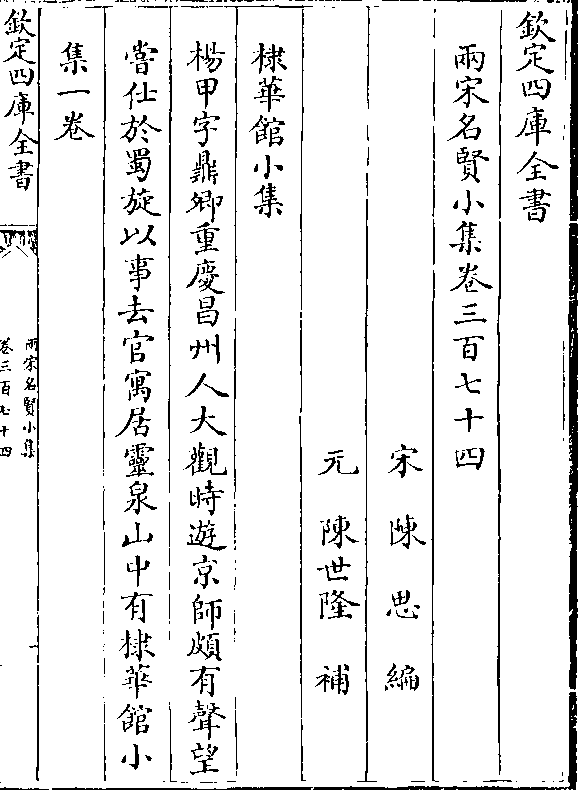 欽定四庫全書
兩宋名賢小集卷三百七十四
宋 陳思 編
元 陳世隆 補
棣華館小集
楊甲字鼎卿重慶昌州人大觀時遊京師頗有聲望
嘗仕於蜀旋以事去官寓居靈泉山中有棣華館小
集一卷
欽定四庫全書
兩宋名賢小集
卷三百七十四
一